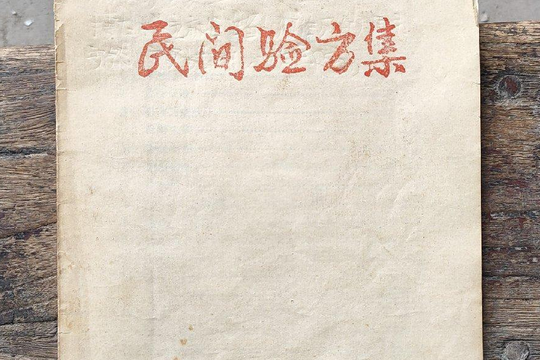 民间验方集